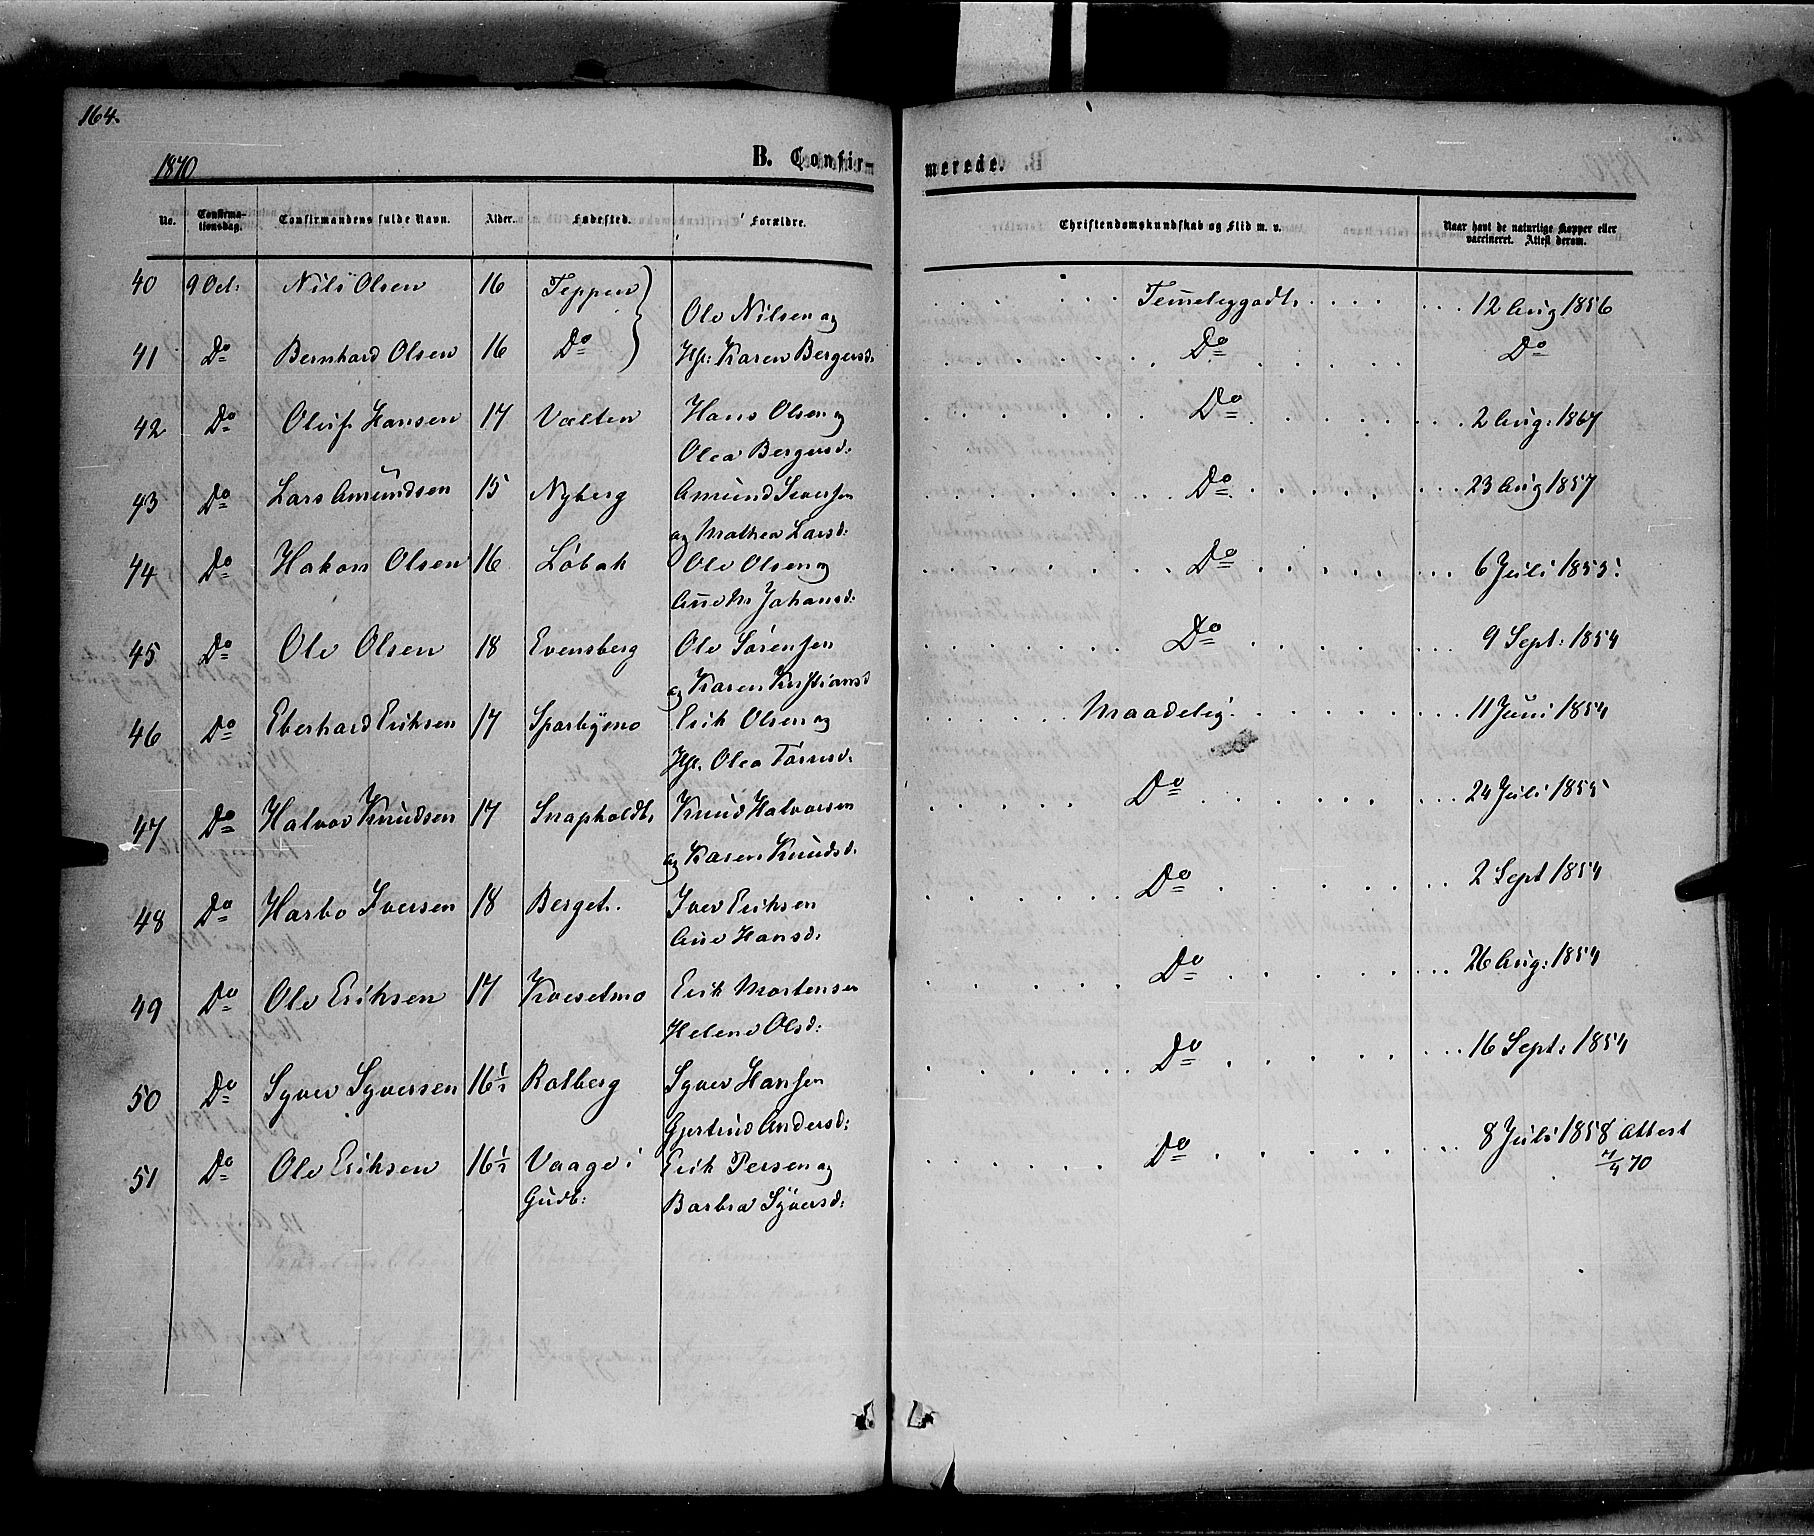 164.
1870
B. Confirmerede.
No. Confirmationsdag. Confirmandens fulde Navn. Alder. Fødested. Forældre. Christendomskundskab og Flid m. v. Naar havt de naturlige Kopper eller vaccineret. Attest derom.
40 9 Oct: Nils Olsen 16 Teppen Ole Nilsen og Temeliggodt. 12 Aug 1856
41 Do Bernhard Olsen 16 Do Hf: Karen Bergersd: Do Do
42 Do Oluf Hansen 17 Vælten Hans Olsen og Do 2 Aug: 1867
Olea Bergersd:
43 Do Lars Amundsen 15 Nyberg Amund Iversen Do 23 Aug 1857
og Mathea Larsd:
44 Do Hakon Olsen 16 Løbak Ole Olsen og Do 6 Juli 1855:
Ane M Johansd:
45 Do Ole Olsen 18 Evensberg Ole Sørensen Do 9 Sept: 1854
og Karen Kristiansd
46 Do Eberhard Eriksen 17 Sparbyeno Erik Olsen og Maadelig. 11 Juni 1854
Hf. Olea Torersd.
47 Do Halvor Knudsen 17 Snapholdt. Knud Halvorsen Do 24 Juli 1855
og Karen Knudsd.
48 Do Harbo Iversen 18 Berget. Iver Eriksen Do 2 Sept 1854
Ane Hansd:
49 Do Ole Eriksen 17 Kveset­mo Erik Mortensen Do 26 Aug: 1854
Helene Olsd:
50 Do Syver Syversen 16½ Rolberg Syver Hansen Do 16 Sept: 1854
Gjertrud Andersd:
51 Do Ole Eriksen 16½ Vaage i Erik Persen og Do 8 Juli 1858 Attest
Gudb: Barbra Syversd: 70